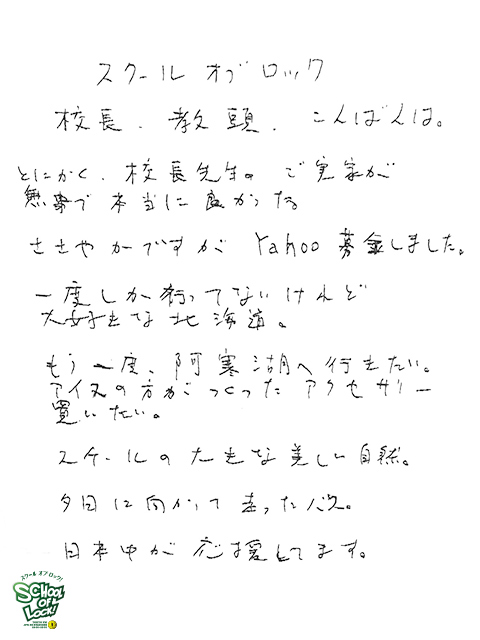 スクール オブ ロック
校長、教頭、こんばんは。
とにかく、校長先生の ご実家が
無事で 本当に良かったる
ささやかですが Yahoo 募金しました。
一度しか行ってないけれど
大好きな北海道。
もう一度、阿寒湖へ行きたい。
アイヌの方がつくったアクセサリー
買いたい。
スケールの大きな美しい自然。
夕日に向かって走ったバス。
日本中が応援してます。
スクール オブ ロック!
SCHOOL
OF
LOCK!